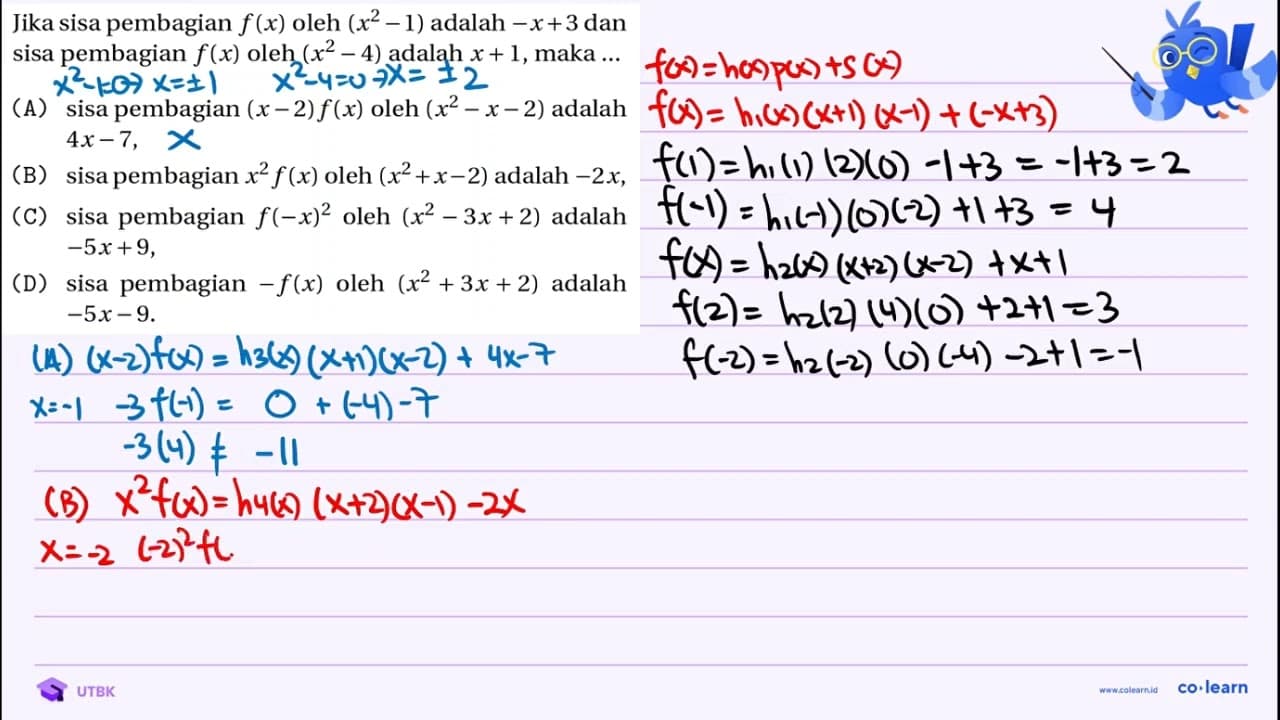 Jika sisa pembagian f(x) oleh (x² − 1) adalah −x + 3 dan
sisa pembagian f(x) oleh (x² − 4) adalah x + 1, maka ...
x²-1=0 ⇒ x=±1 x²-4=0 ⇒ x= ±2
(A) sisa pembagian (x − 2)f(x) oleh (x² − x − 2) adalah
4x − 7, X
(B) sisa pembagian x² f(x) oleh (x² + x − 2) adalah −2x,
(C) sisa pembagian f(−x)² oleh (x² − 3x + 2) adalah
−5x + 9,
(D) sisa pembagian −f(x) oleh (x² + 3x + 2) adalah
−5x − 9.
f(x) = h(x) p(x) + s(x)
f(x) = h₁(x) (x+1) (x-1) + (-x+3)
f(1) = h₁(1) (2)(0) -1+3 = -1+3 = 2
f(-1) = h₁(-1) (0)(-2) +1+3 = 4
f(x) = h₂(x) (x+2)(x-2) + x+1
f(2) = h₂(2) (4)(0) +2+1 = 3
f(-2) = h₂(-2) (0)(-4) -2+1 = -1
(A) (x-2)f(x) = h3(x) (x+1)(x-2) + 4x-7
x=-1 -3 f(-1) = 0 + (-4) -7
-3(4) ≠ -11
(B) x²f(x) = h4(x) (x+2)(x-1) -2x
x=-2 (-2)² f(
UTBK
www.colearn.id co·learn